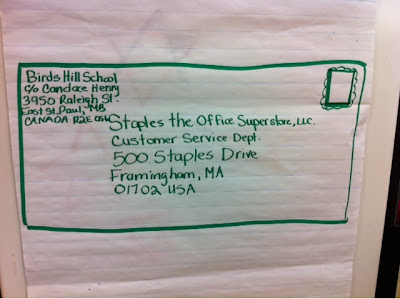 Birds Hill School
c/o Candace Henry
3950 Raleigh St.
East St. Paul, MB
CANADA R2E 0G4
Staples the Office Superstore, LLC.
Customer Service Dept.
500 Staples Drive
Framingham, MA
01702 USA